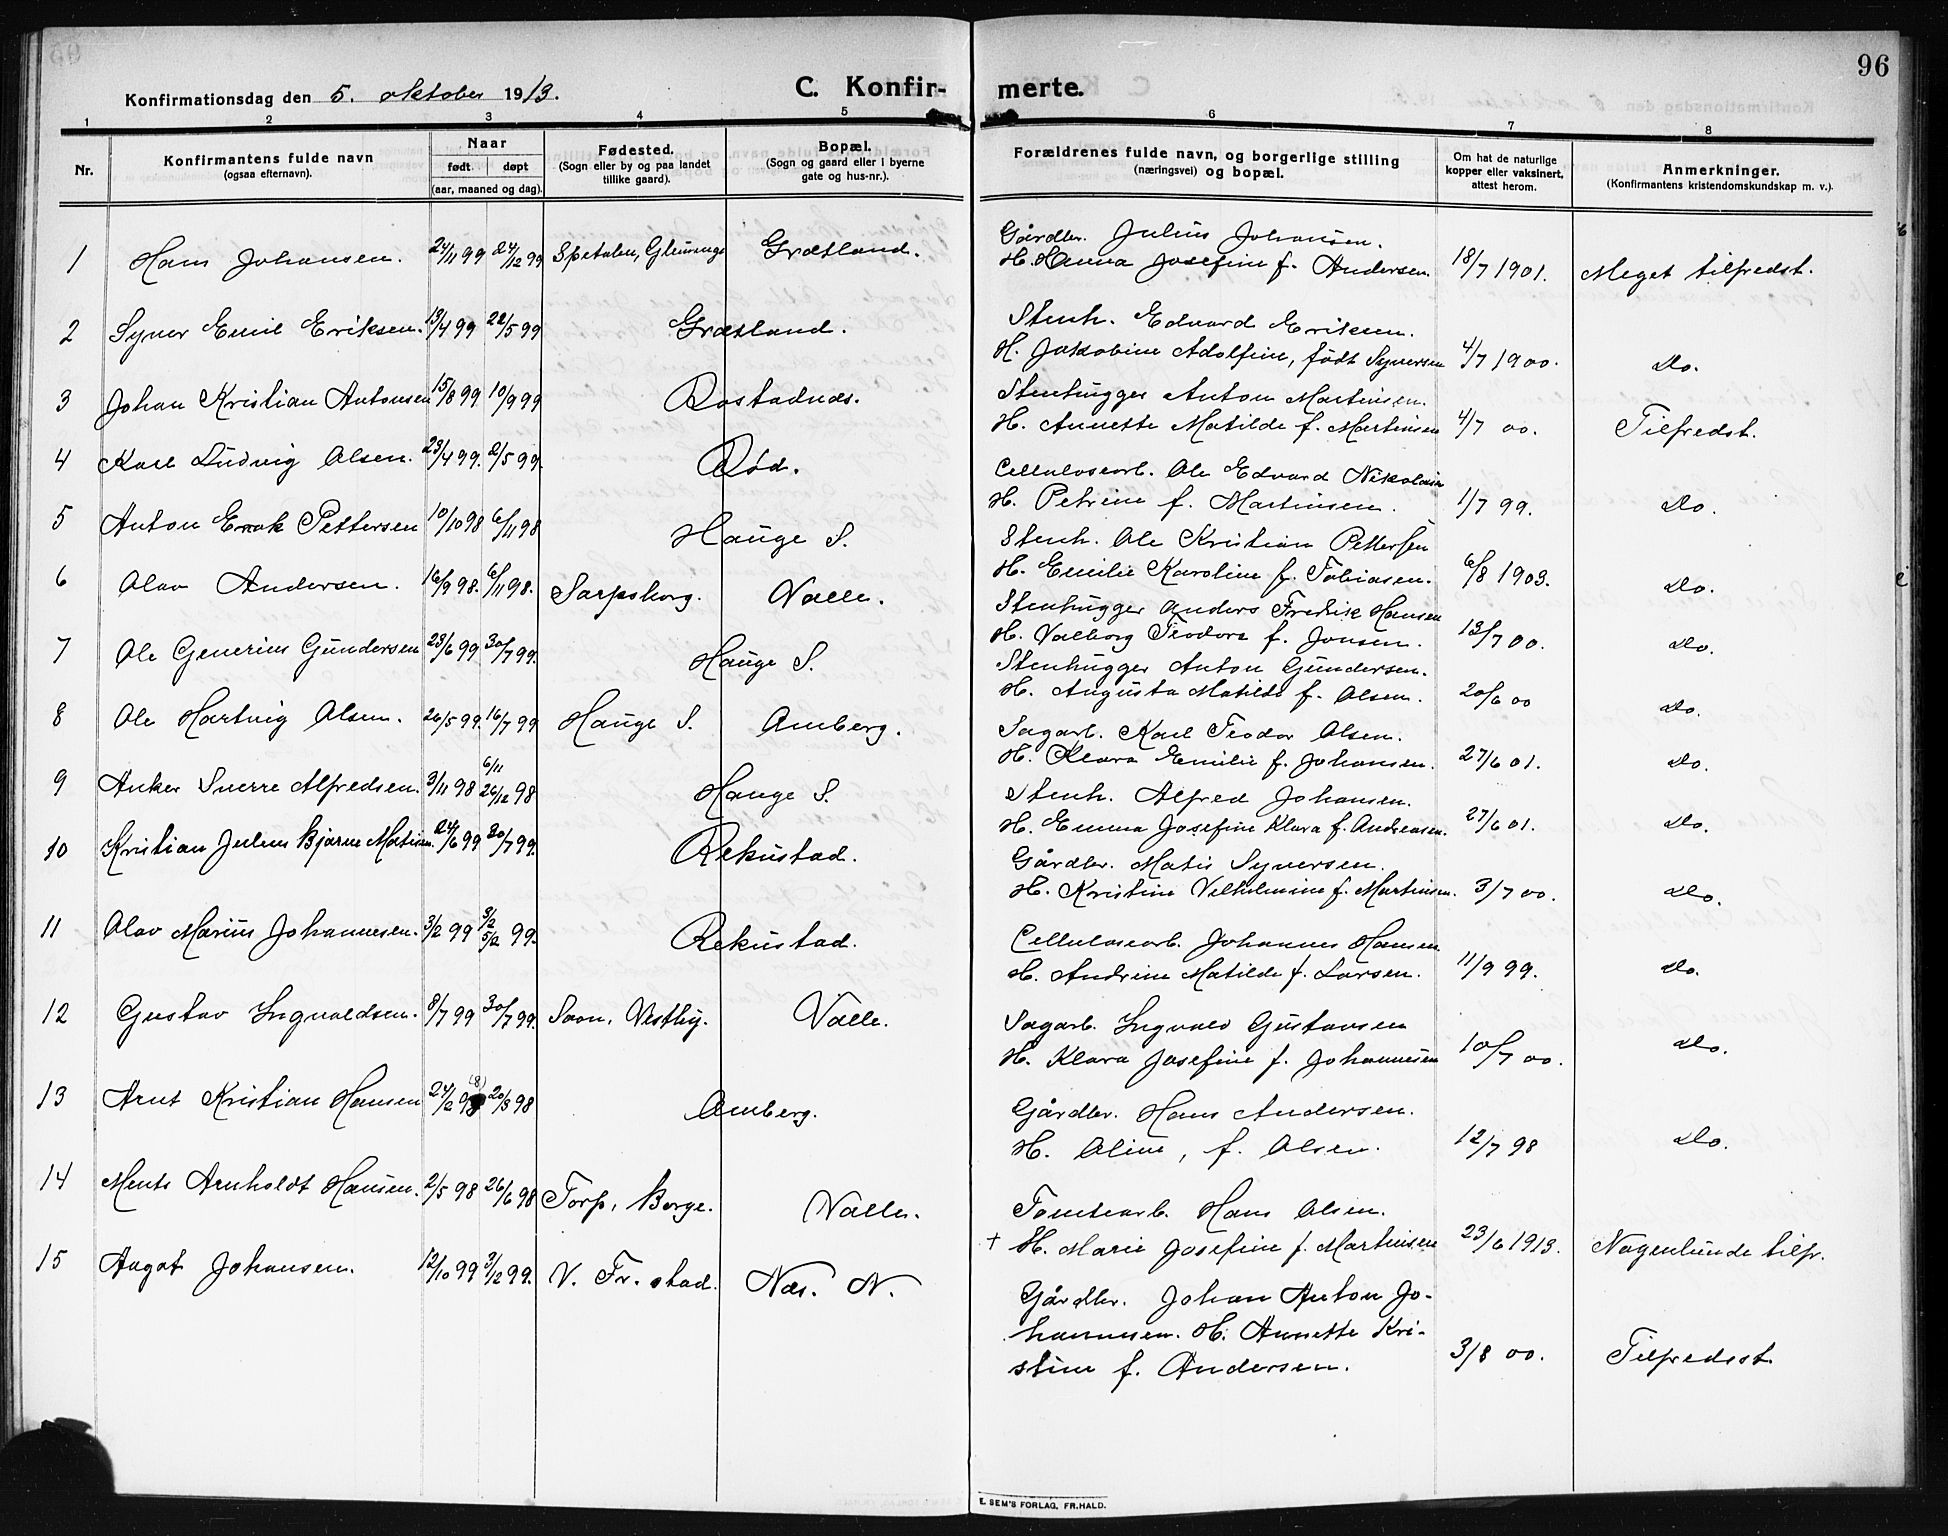 96
Konfirmationsdag den 5. oktober 1913.
C. Konfirmerte.
1 2 3 4 5 6 7 8
Nr.
Konfirmantens fulde navn
(ogsaa efternavn).
Naar
født døpt
(aar, maaned og dag).
Fødested.
(Sogn eller by og paa landet
tillike gaard).
Bopæl.
(Sogn og gaard eller i byerne
gate og hus-nr.).
Forældrenes fulde navn, og borgerlige stilling
(næringsvei) og bopæl.
Om hat de naturlige
kopper eller vaksinert,
attest herom.
Anmerkninger.
(Konfirmantens kristendomskundskap m. v.).
1 Hans Johansen. 24/11 99 24/12 99 Spetalen, Glemminge Græsland. Gårdbr. Julius Johansen.
H. Hanna Josefine f. Andersen 18/7 1901. Meget tilfredst.
2 Syver Emil Eriksen. 13/4 99 22/5 99 Græsland. Stenh. Edvard Eriksen.
H. Jakobine Adolfine, født Syversen 4/7 1900. Do.
3 Johan Kristian Antonsen 15/8 99 10/9 99 Rostadnes. Stenhugger Anton Martinsen.
H. Annette Matilde f. Martinsen 4/7 00. Tilfredst.
4 Karl Ludvig Olsen. 23/4 99. 2/5 99. Rød. Cellulosearb. Ole Edvard Nikolain
H. Petrine f. Martinsen. 1/7 99. Do.
5 Anton Enok Pettersen 10/10 98 6/11 98 Hauge S. Stenh. Ole Kristian Pettersen
H. Emilie Karoline f. Tobiasen. 6/8 1903. Do.
6 Olav Andersen. 16/9 98. 6/11 98. Sarpsborg. Valle. Stenhugger Anders Fredrik Hansen
H. Valborg Teodora f. Jonsen. 13/7 00. Do.
7 Ole Generius Gundersen 23/6 99 30/7 99. Hauge S. Stenhugger Anton Gundersen.
H. Augusta Matilde f. Olsen. 20/6 00 Do.
8 Ole Hartvig Olsen. 26/5 99. 16/7 99 Hauge S. Omberg. Sagarb. Karl Teodor Olsen.
H. Klara Emilie f. Johansen. 27/6 01. Do.
9 Anker Sverre Alfredsen. 3/11 98 6/11 26/12 98 Hauge S. Stenh. Alfred Johansen.
H. Emma Josefine Klara f. Andreasen. 27/6 01. Do.
10 Kristian Julius Bjarne Matisen. 24/6 99 30/7 99. Rekustad. Gårdbr. Matis Syversen.
H. Kristine Vilhelmine f. Martinsen. 3/7 00. Do.
11 Olav Marius Johannesen. 3/2 99 3/2 5/2 99. Rekustad. Cellulosearb. Johannes Hansen
H. Andrine Matilde f. Larsen. 11/9 99. Do.
12 Gustav Ingvaldsen. 8/7 99 30/7 99. Soon, Vestby. Valle. Sagarb. Ingvald Gustavsen
H. Klara Josefine f. Johannesen 10/7 00. Do.
13 Arnt Kristian Hansen 24/2 98 (8) 20/3 98 Omberg. Gårdbr. Hans Andersen.
H. Oline, f. Olsen. 12/7 98 Do.
14 Ments Arnholdt Hansen. 2/5 98 26/6 98 Torp, Borge. Valle. Tomtearb. Hans Olsen.
+ H. Marie Josefine f. Martinsen 23/6 1913. Nogenlunde tilfr.
15 Aagot Johansen. 12/10 99 3/12 99. V. Fr.stad. Nes. N. Gårdbr. Johan Anton Jo-
hannesen. H. Annette Kri-
stine f. Andersen. 3/8 00. Tilfredsst.
E. SEM'S FORLAG, FR.HALD.